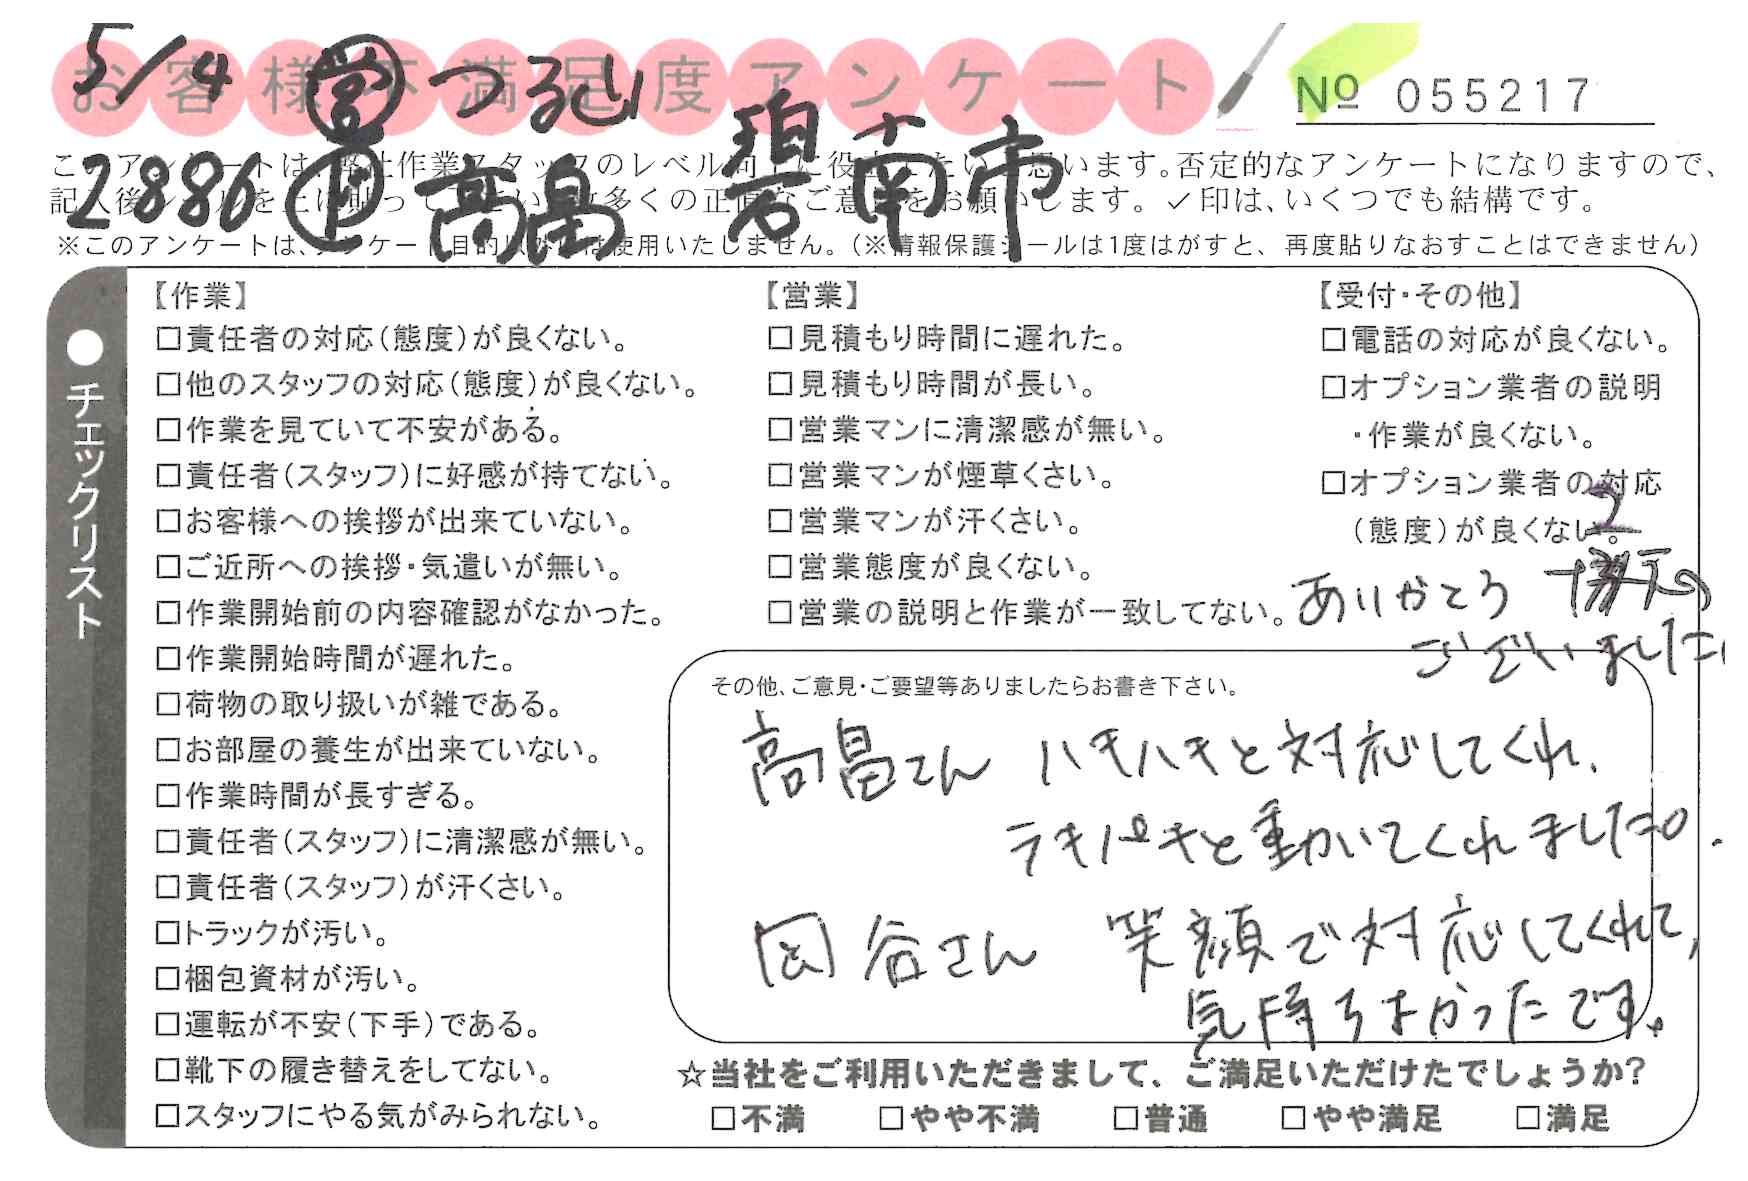 お客様不満足度アンケート
№ 055217
5/4 営 つるし
碧南市
2886 P 高畠
このアンケートは、弊社作業スタッフのレベル向上に役立てたいと思います。否定的なアンケートになりますので、
記入後シールを上に貼って下さい。数多くの正直なご意見をお願いします。✓印は、いくつでも結構です。
※このアンケートは、アンケート目的以外には使用いたしません。(※情報保護シールは1度はがすと、再度貼りなおすことはできません)
●チェックリスト
【作業】
□責任者の対応(態度)が良くない。
□他のスタッフの対応(態度)が良くない。
□作業を見ていて不安がある。
□責任者(スタッフ)に好感が持てない。
□お客様への挨拶が出来ていない。
□ご近所への挨拶・気遣いが無い。
□作業開始前の内容確認がなかった。
□作業開始時間が遅れた。
□荷物の取り扱いが雑である。
□お部屋の養生が出来ていない。
□作業時間が長すぎる。
□責任者(スタッフ)に清潔感が無い。
□責任者(スタッフ)が汗くさい。
□トラックが汚い。
□梱包資材が汚い。
□運転が不安(下手)である。
□靴下の履き替えをしてない。
□スタッフにやる気がみられない。
【営業】
□見積もり時間に遅れた。
□見積もり時間が長い。
□営業マンに清潔感が無い。
□営業マンが煙草くさい。
□営業マンが汗くさい。
□営業態度が良くない。
□営業の説明と作業が一致してない。
【受付・その他】
□電話の対応が良くない。
□オプション業者の説明
・作業が良くない。
□オプション業者の対応
(態度)が良くない。
2
ありがとう
ございました
その他、ご意見・ご要望等ありましたらお書き下さい。
高畠さん ハキハキと対応してくれ、
テキパキと動いてくれました。
岡谷さん 笑顔で対応してくれて、
気持ちよかったです。
☆当社をご利用いただきまして、ご満足いただけたでしょうか?
□不満 □やや不満 □普通 □やや満足 □満足